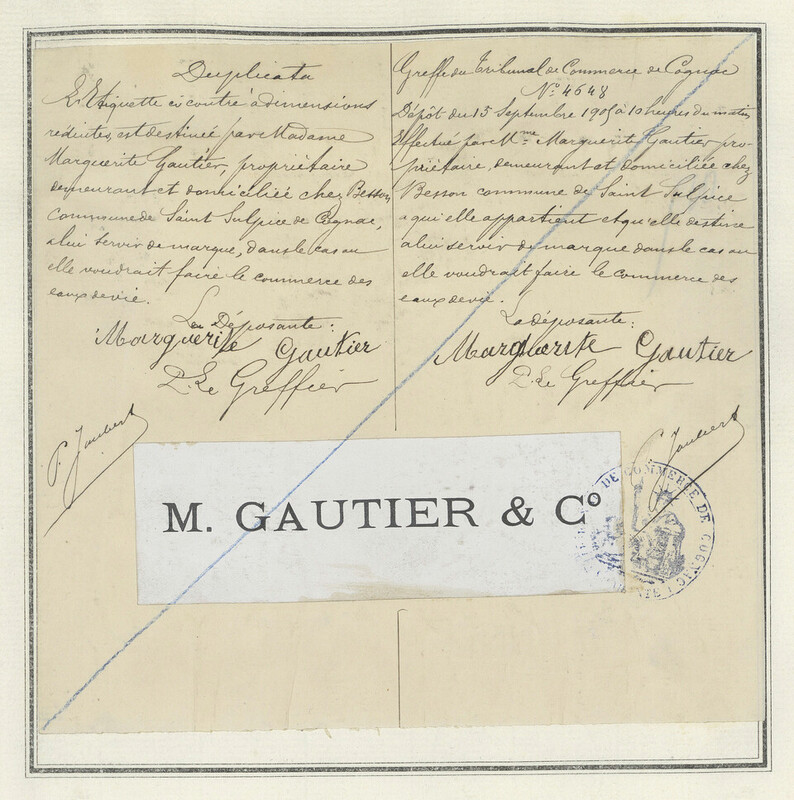 Duplicata
L'Etiquette ci contre à dimensions
réduites, est destinée par Madame
Marguerite Gautier, propriétaire
demeurant et domiciliée chez Besson,
commune de Saint Sulpice de Cognac,
à lui servir de marque, dans le cas ou
elle voudrait faire le commerce des
eaux de vie.
La Déposante:
Marguerite Gautier
P. Le Greffier
P. Jaubert
Greffe du Tribunal de Commerce de Cognac
No. 4648
Dépôt du 15 Septembre 1905 à 10 heures du matin
Effectué par Mme Marguerite Gautier, pro-
priétaire, demeurant et domiciliée chez
Besson commune de Saint Sulpice
à qui elle appartient et qu'elle destine
à lui servir de marque dans le cas ou
elle voudrait faire le commerce des
eaux de vie.
La déposante:
Marguerite Gautier
P. Le Greffier
Jaubert
M. GAUTIER & Co
DE COMMERCE DE COGNAC